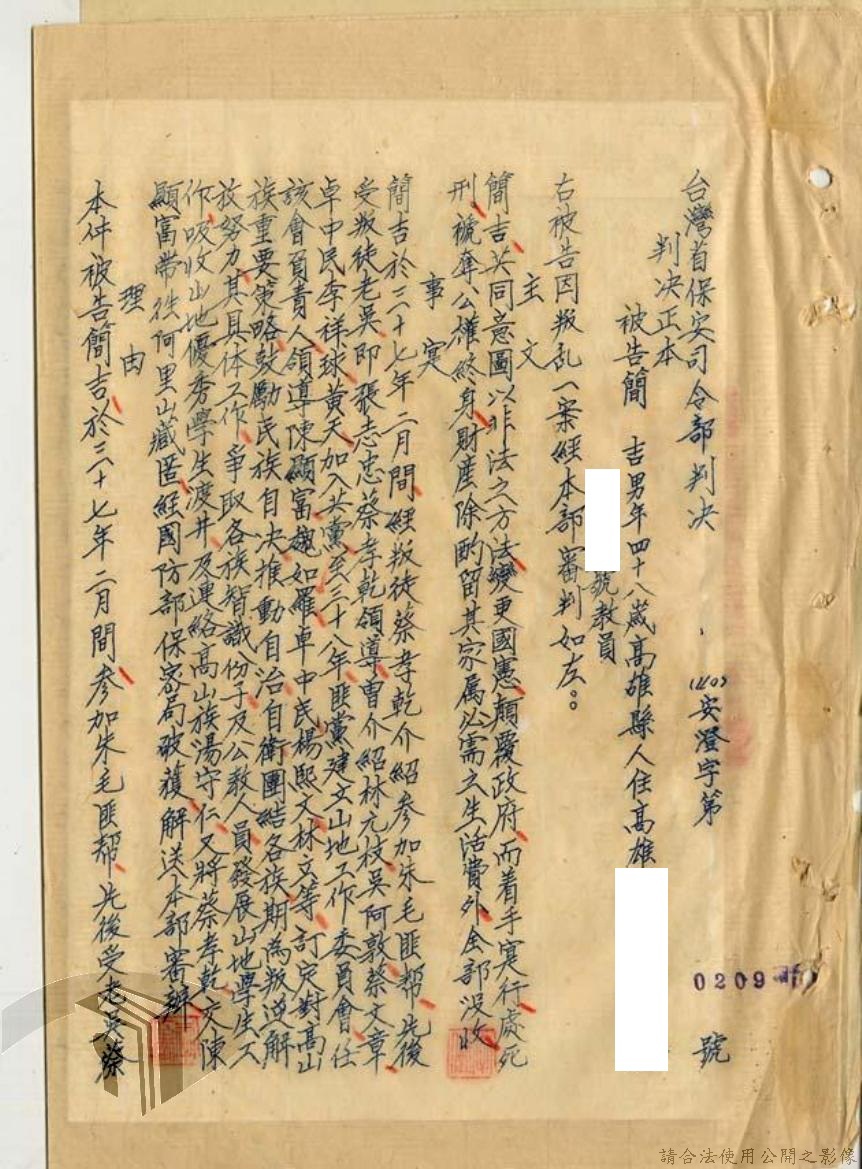 台灣省保安司令部判決
(40)安澄字第
0209
號
判決正本
被告簡 吉男年四十八歲高雄縣人住高雄
號教員
右被告因叛乱一案經本部審判如左：
主文
簡吉共同意圖以非法之方法變更國憲顛覆政府而着手実行處死
刑褫奪公權終身財產除酌留其家屬必需之生活費外全部没收
事実
簡吉於三十七年二月間經叛徒蔡孝乾介紹參加朱毛匪幫先後
受叛徒老吳即張志忠蔡孝乾領導曾介紹林元枝吳阿敦蔡文章
卓中民李祥球黃天加入共黨至三十八年匪黨建立山地工作委員會任
該會負責人領導陳顯富魏如羅卓中民楊熙文林立等訂定對高山
族重要策略鼓勵民族自決推動自治自衛團結各族期為叛逆解
放努力其具体工作爭取各族智識份子及公教人員發展山地學生工
作吸收山地優秀學生渡井及連絡高山族湯守仁又將蔡孝乾交陳
顯富帶往阿里山藏匿經國防部保密局破獲解送本部審辦
理由
本件被告簡吉於三十七年二月間參加朱毛匪幫先後受老吳蔡
請合法使用公開之影像